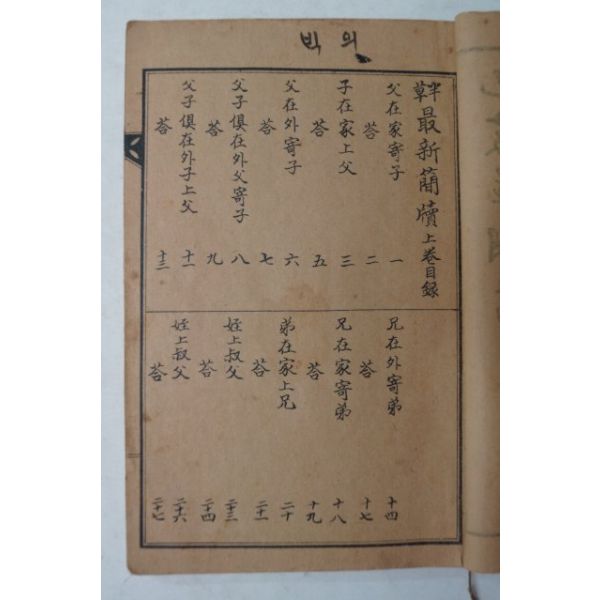 빅 의
半草 最新簡牘上卷目錄
父在家寄子 一
荅 二
子在家上父 三
荅 五
父在外寄子 六
荅 七
父子俱在外父寄子 八
荅 九
父子俱在外子上父 十一
荅 十三
兄在外寄弟 十四
荅 十七
兄在家寄弟 十八
荅 十九
弟在家上兄 二十
荅 二十一
姪上叔父 二十三
荅 二十四
姪上叔父 二十六
荅 二十七